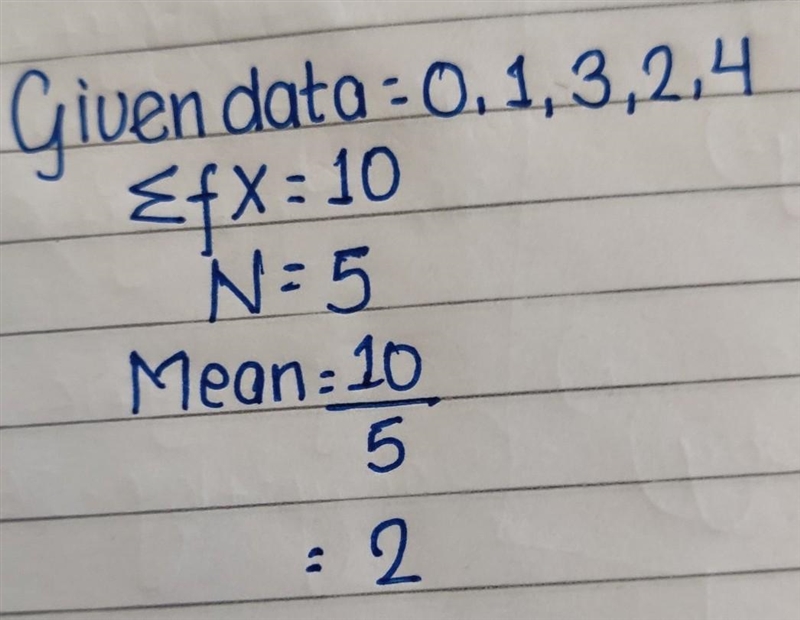 Given data = 0, 1, 3, 2, 4
Σfx = 10
N = 5
Mean = 10
5
= 2